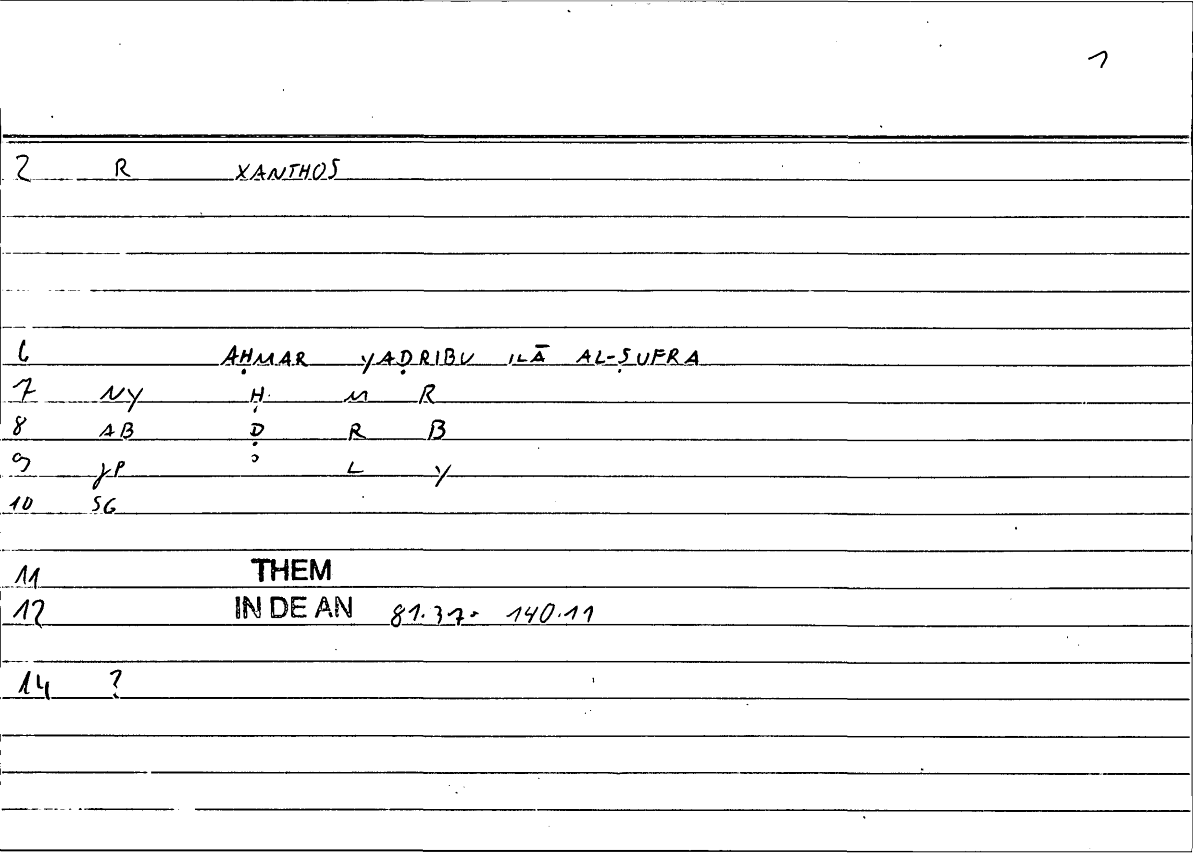 1
2 R XANTHOS
6 AḤMAR YAḌRIBU ILĀ AL-ṢUFRA
7 NY Ḥ M R
8 AB Ḍ R B
9 γP L Y
10 SG
11 THEM
12 IN DE AN 81.37. 140.11
14 ?